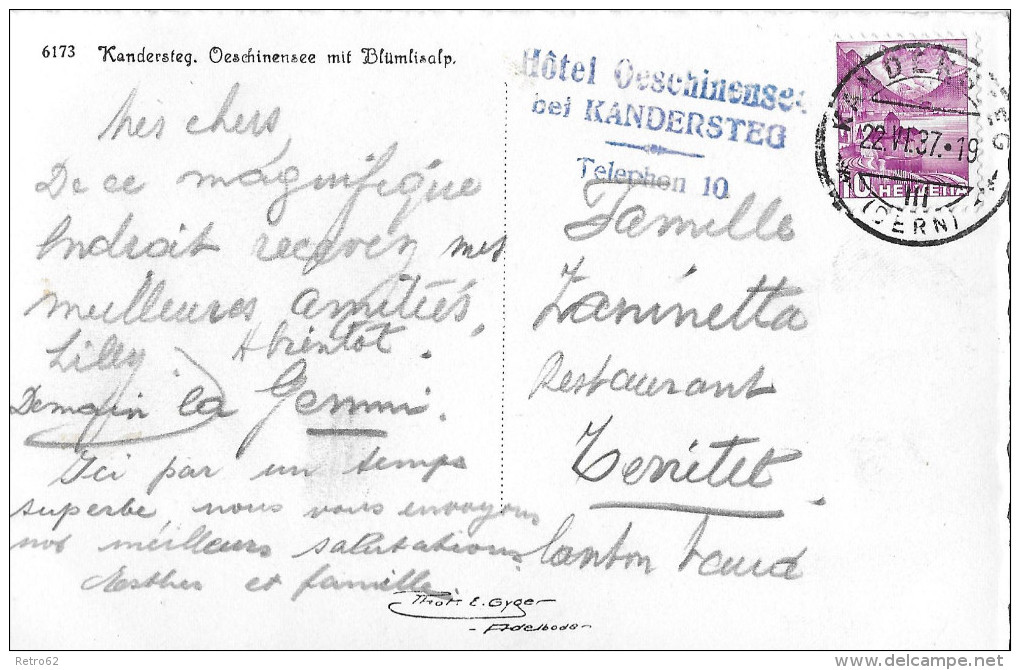 6173 Kandersteg. Oeschinensee mit Blümlisalp.
Mes chers,
De ce magnifique
Endroit recevez mes
meilleures amitiés,
Lilly. A bientôt.
Demain la Gemmi.
Ici par un temps
superbe nous vous envoyons
nos meilleurs salutations
Esther et famille.
Hôtel Oeschinensee
bei KANDERSTEG
Telephon 10
KANDERSTEG
22.VI.37.-19
III
(BERN)
10 HELVETIA
Famille
Zaninetta
Restaurant
Territet.
Canton Vaud
Phot. E. Gyger
- Adelboden -
Retro62
www.delcampe.net